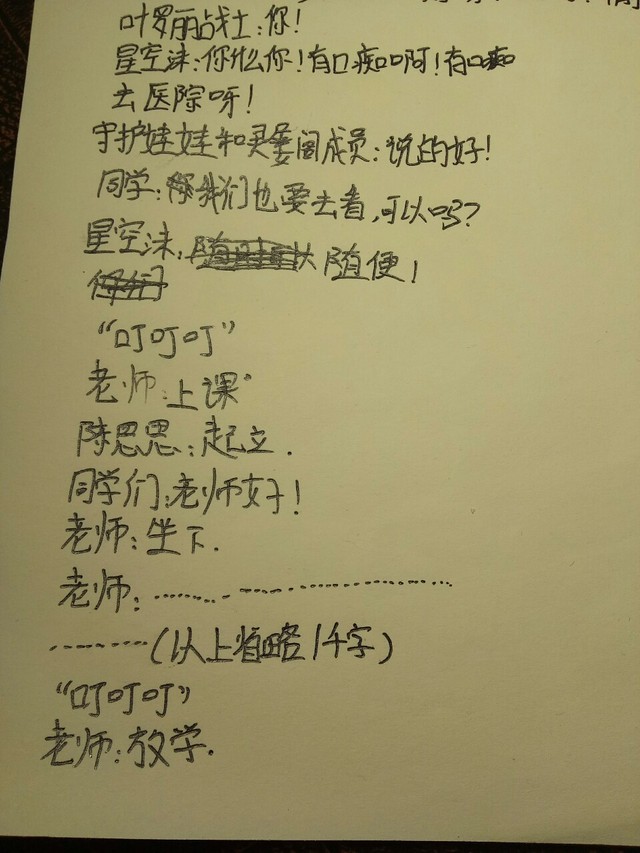 叶罗丽战士:你!
星空沫:你什么你!有口痴啊!有口痴
去医院呀!
守护娃娃和灵萋阁成员:说的好!
同学:我们也要去看,可以吗?
星空沫: 随便!
“叮叮叮”
老师:上课
陈思思:起立.
同学们:老师好!
老师:坐下.
老师:………………………………
………(以上省略1千字)
“叮叮叮”
老师:放学.